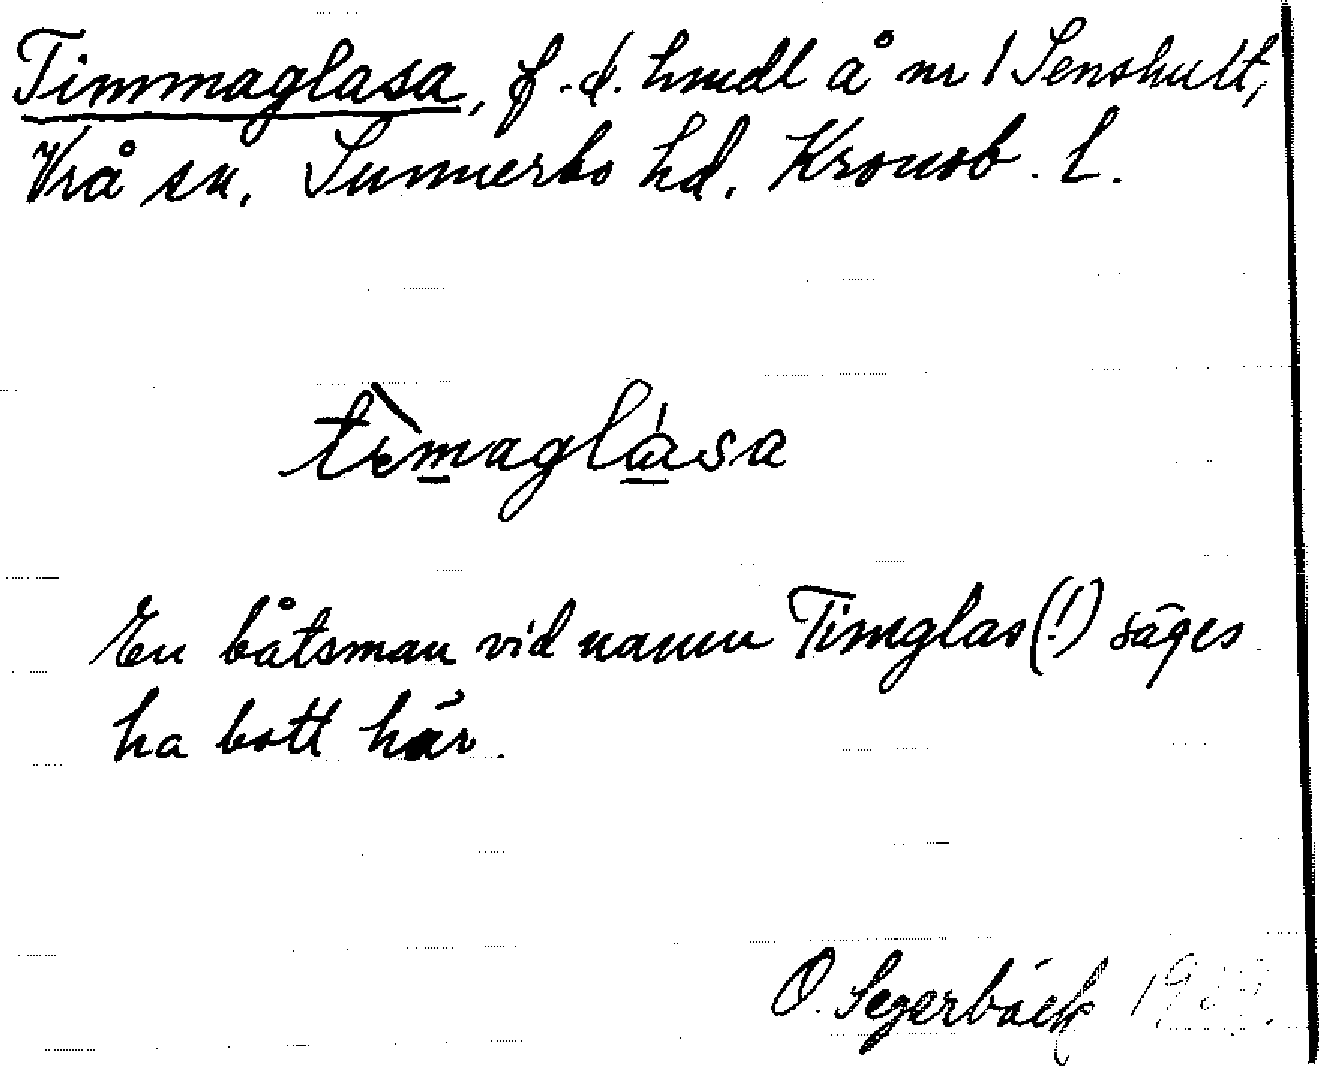 Timmaglasa, f.d. hmdl å nr 1 Senshult,
Vrå sn. Sunnerbo hd. Kronob. L.
tèmaglása
En båtsman vid namn Timglas(!) säges
ha bott här.
O. Segerbäck